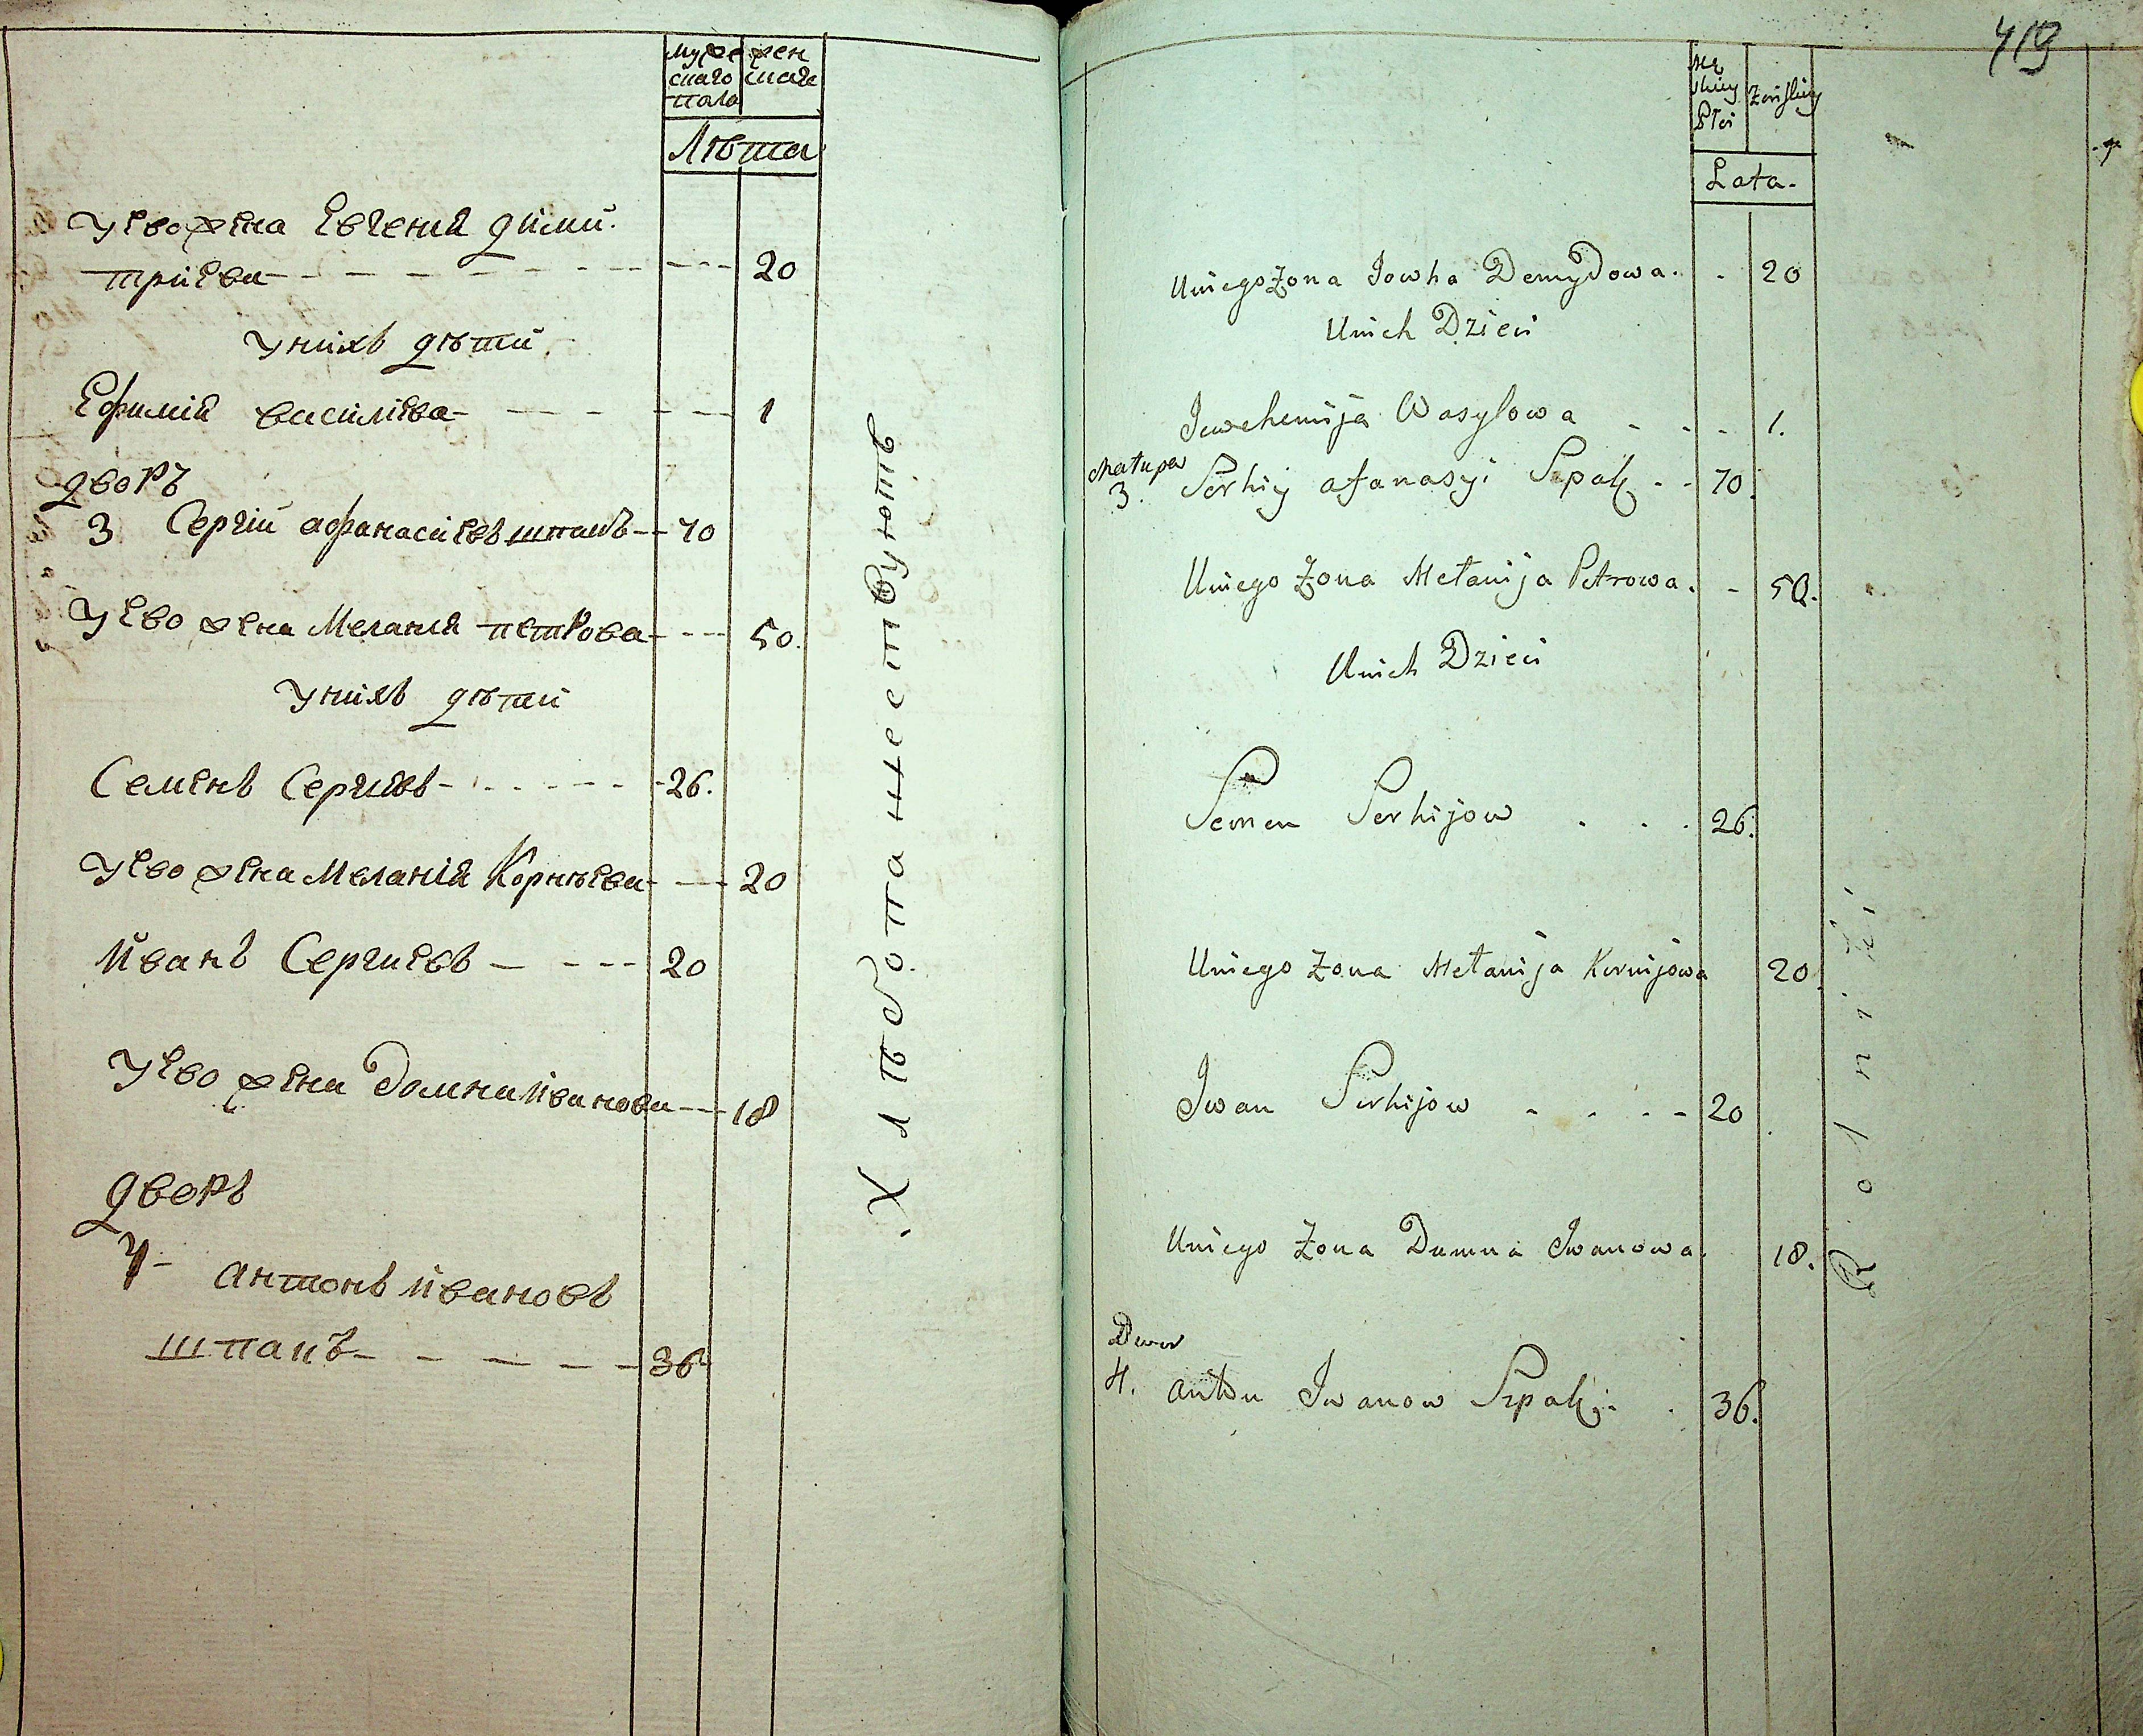 Мужескаго пола
женскаго
Лѣта
У ево жена Евгенія Дими
тріева 20
У нихъ дѣти
Ефимія Василіева 1
дворъ
3 Сергій Афанасіевъ Шпакъ 70
У ево жена Меланія Петрова 50.
У нихъ дѣти
Семенъ Сергиевъ 26.
У ево жена Меланія Корнѣева 20
Иванъ Сергиевъ 20
У ево жена Домна Иванова 18
дворъ
4 Антонъ Ивановъ
Шпакъ 36
Хлѣбопашествуютъ
419
Męskiey Płci
Zeńskiey
Lata.
U niego Żona Jowha Demydowa. 20
U nich Dzieci
Jewchemija Wasylowa 1.
Chałupa
3. Serhiy Afanasyi Szpak 70.
U niego Żona Mełanija Petrowa. 50.
U nich Dzieci
Semen Serhijow 26.
U niego Żona Mełanija Kornijowa 20.
Iwan Serhijow 20
U niego Żona Dumna Iwanowa. 18.
Dwor
4. Anton Iwanow Szpak. 36.
Rolniki